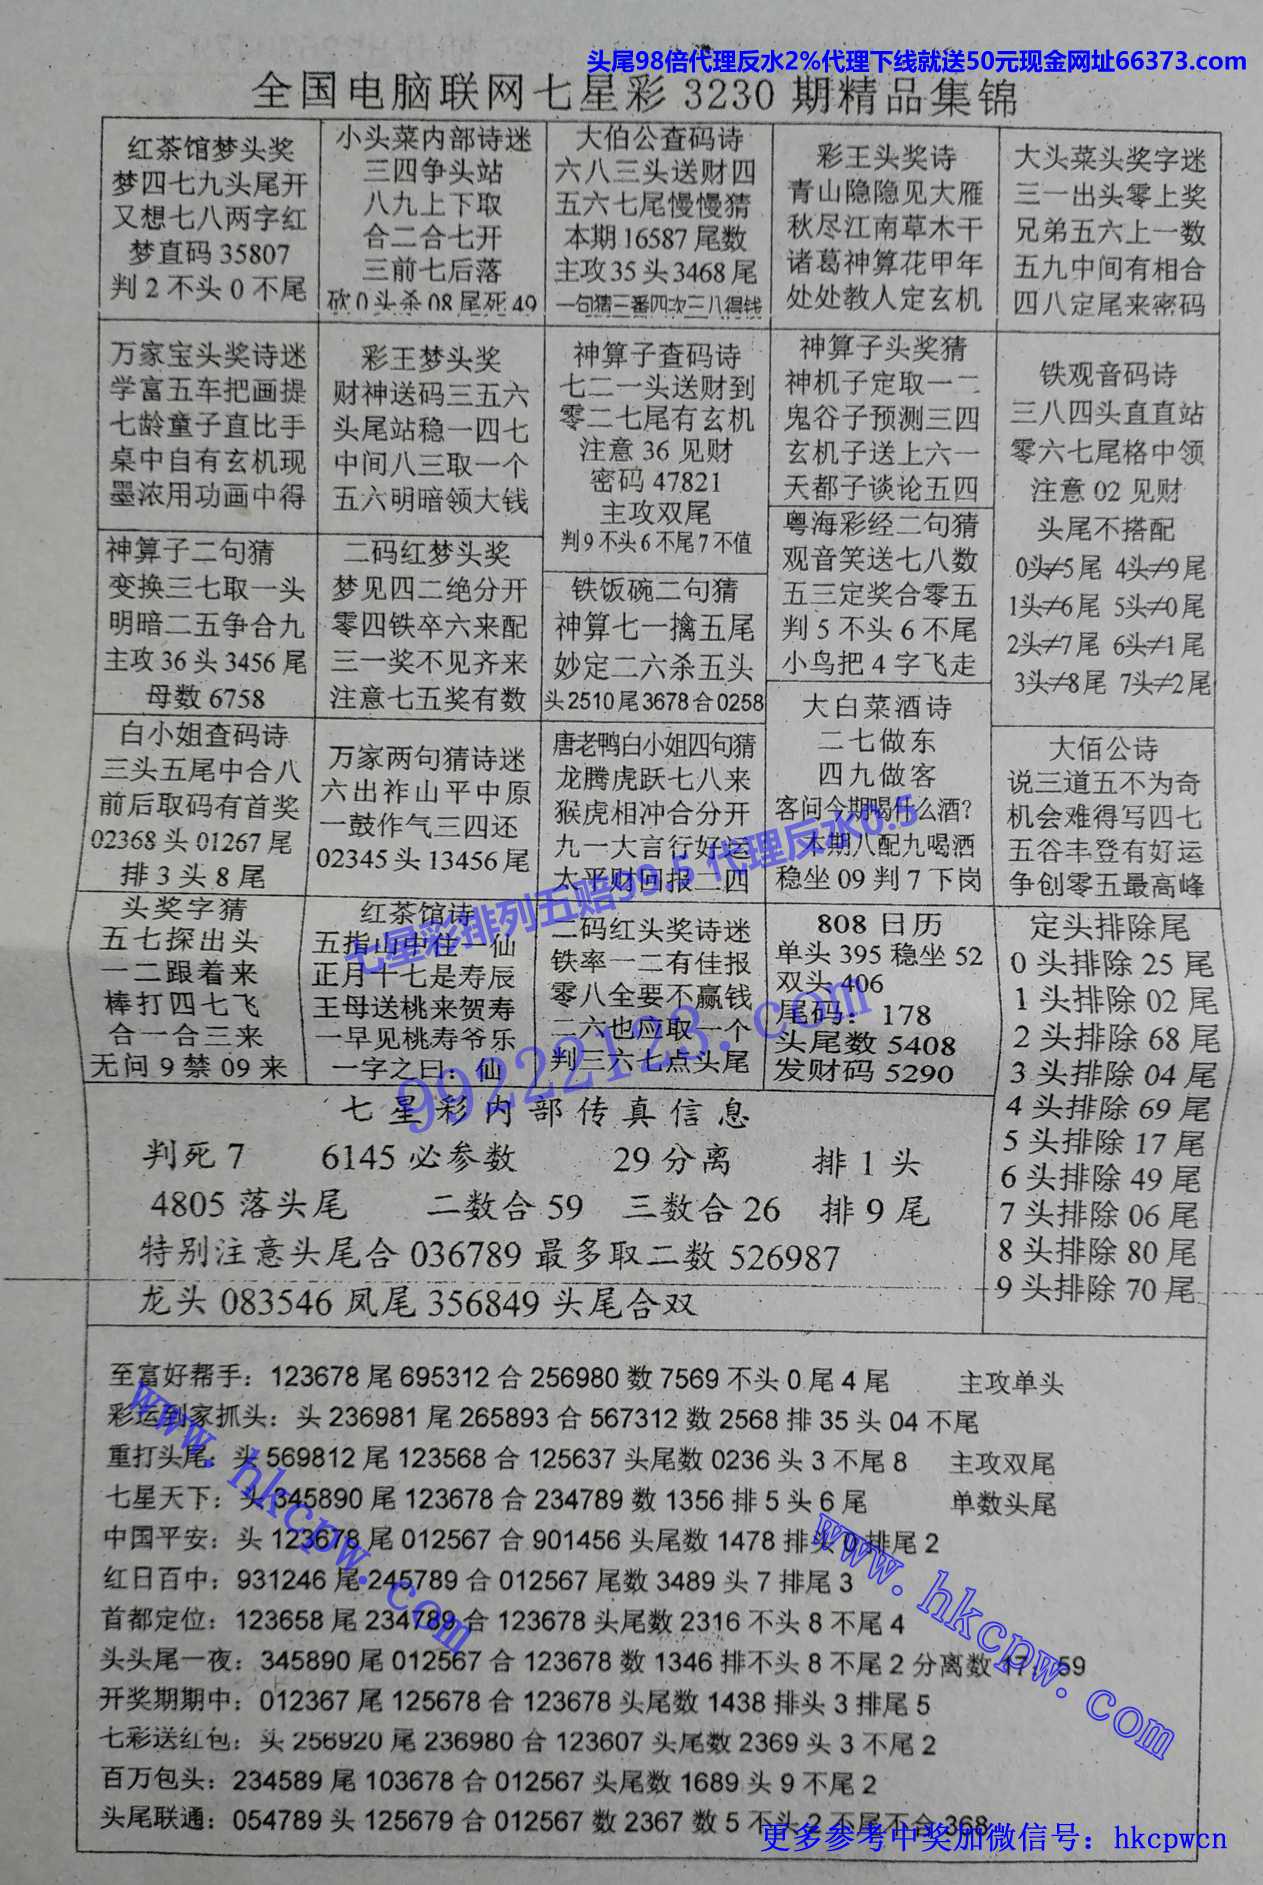 头尾98倍代理反水2%代理下线就送50元现金网址66373.com
全国电脑联网七星彩3230期精品集锦
红茶馆梦头奖
梦四七九头尾开
又想七八两字红
梦直码35807
判2不头0不尾
小头菜内部诗迷
三四争头站
八九上下取
合二合七开
三前七后落
砍0头杀08尾死49
大伯公查码诗
六八三头送财四
五六七尾慢慢猜
本期16587尾数
主攻35头3468尾
一句猜三番四次三八得钱
彩王头奖诗
青山隐隐见大雁
秋尽江南草木干
诸葛神算花甲年
处处教人定玄机
大头菜头奖字迷
三一出头零上奖
兄弟五六上一数
五九中间有相合
四八定尾来密码
万家宝头奖诗迷
学富五车把画提
七龄童子直比手
桌中自有玄机现
墨浓用功画中得
彩王梦头奖
财神送码三五六
头尾站稳一四七
中间八三取一个
五六明暗领大钱
神算子查码诗
七二一头送财到
零二七尾有玄机
注意36见财
密码47821
主攻双尾
判9不头6不尾7不值
神算子头奖猜
神机子定取一二
鬼谷子预测三四
玄机子送上六一
天都子谈论五四
铁观音码诗
三八四头直直站
零六七尾格中领
注意02见财
头尾不搭配
0头≠5尾 4头≠9尾
1头≠6尾 5头≠0尾
2头≠7尾 6头≠1尾
3头≠8尾 7头≠2尾
神算子二句猜
变换三七取一头
明暗二五争合九
主攻36头3456尾
母数6758
二码红梦头奖
梦见四二绝分开
零四铁卒六来配
三一奖不见齐来
注意七五奖有数
铁饭碗二句猜
神算七一擒五尾
妙定二六杀五头
头2510尾3678合0258
粤海彩经二句猜
观音笑送七八数
五三定奖合零五
判5不头6不尾
小鸟把4字飞走
白小姐查码诗
三头五尾中合八
前后取码有首奖
02368头01267尾
排3头8尾
万家两句猜诗迷
六出祚山平中原
一鼓作气三四还
02345头13456尾
唐老鸭白小姐四句猜
龙腾虎跃七八来
猴虎相冲合分开
九一大言行好运
太平财回报二四
大白菜酒诗
二七做东
四九做客
客问今期喝什么酒?
本期八配九喝酒
稳坐09判7下岗
大佰公诗
说三道五不为奇
机会难得写四七
五谷丰登有好运
争创零五最高峰
头奖字猜
五七探出头
一二跟着来
棒打四七飞
合一合三来
无问9禁09来
红茶馆诗
五指山中住一仙
正月十七是寿辰
王母送桃来贺寿
一早见桃寿爷乐
一字之曰：仙
二码红头奖诗迷
铁率一二有佳报
零八全要不赢钱
二六也应取一个
判三六七点头尾
808日历
单头395稳坐52
双头406
尾码：178
头尾数5408
发财码5290
定头排除尾
0头排除25尾
1头排除02尾
2头排除68尾
3头排除04尾
4头排除69尾
5头排除17尾
6头排除49尾
7头排除06尾
8头排除80尾
9头排除70尾
七星彩排列五赔99.5 代理反水0.5
99222123.com
七星彩内部传真信息
判死7 6145必参数 29分离 排1头
4805落头尾 二数合59 三数合26 排9尾
特别注意头尾合036789最多取二数526987
龙头083546凤尾356849头尾合双
至富好帮手：123678尾695312合256980数7569不头0尾4尾 主攻单头
彩运到家抓头：头236981尾265893合567312数2568排35头04不尾
重打头尾：头569812尾123568合125637头尾数0236头3不尾8 主攻双尾
七星天下：头345890尾123678合234789数1356排5头6尾 单数头尾
中国平安：头123678尾012567合901456头尾数1478排头0排尾2
红日百中：931246尾245789合012567尾数3489头7排尾3
首都定位：123658尾234789合123678头尾数2316不头8不尾4
头头尾一夜：345890尾012567合123678数1346排不头8不尾2分离数17 59
开奖期期中：012367尾125678合123678头尾数1438排头3排尾5
七彩送红包：头256920尾236980合123607头尾数2369头3不尾2
百万包头：234589尾103678合012567头尾数1689头9不尾2
头尾联通：054789头125679合012567数2367数5不头2不尾不合368
www.hkcpw.com
www.hkcpw.com
更多参考中奖加微信号：hkcpwcn